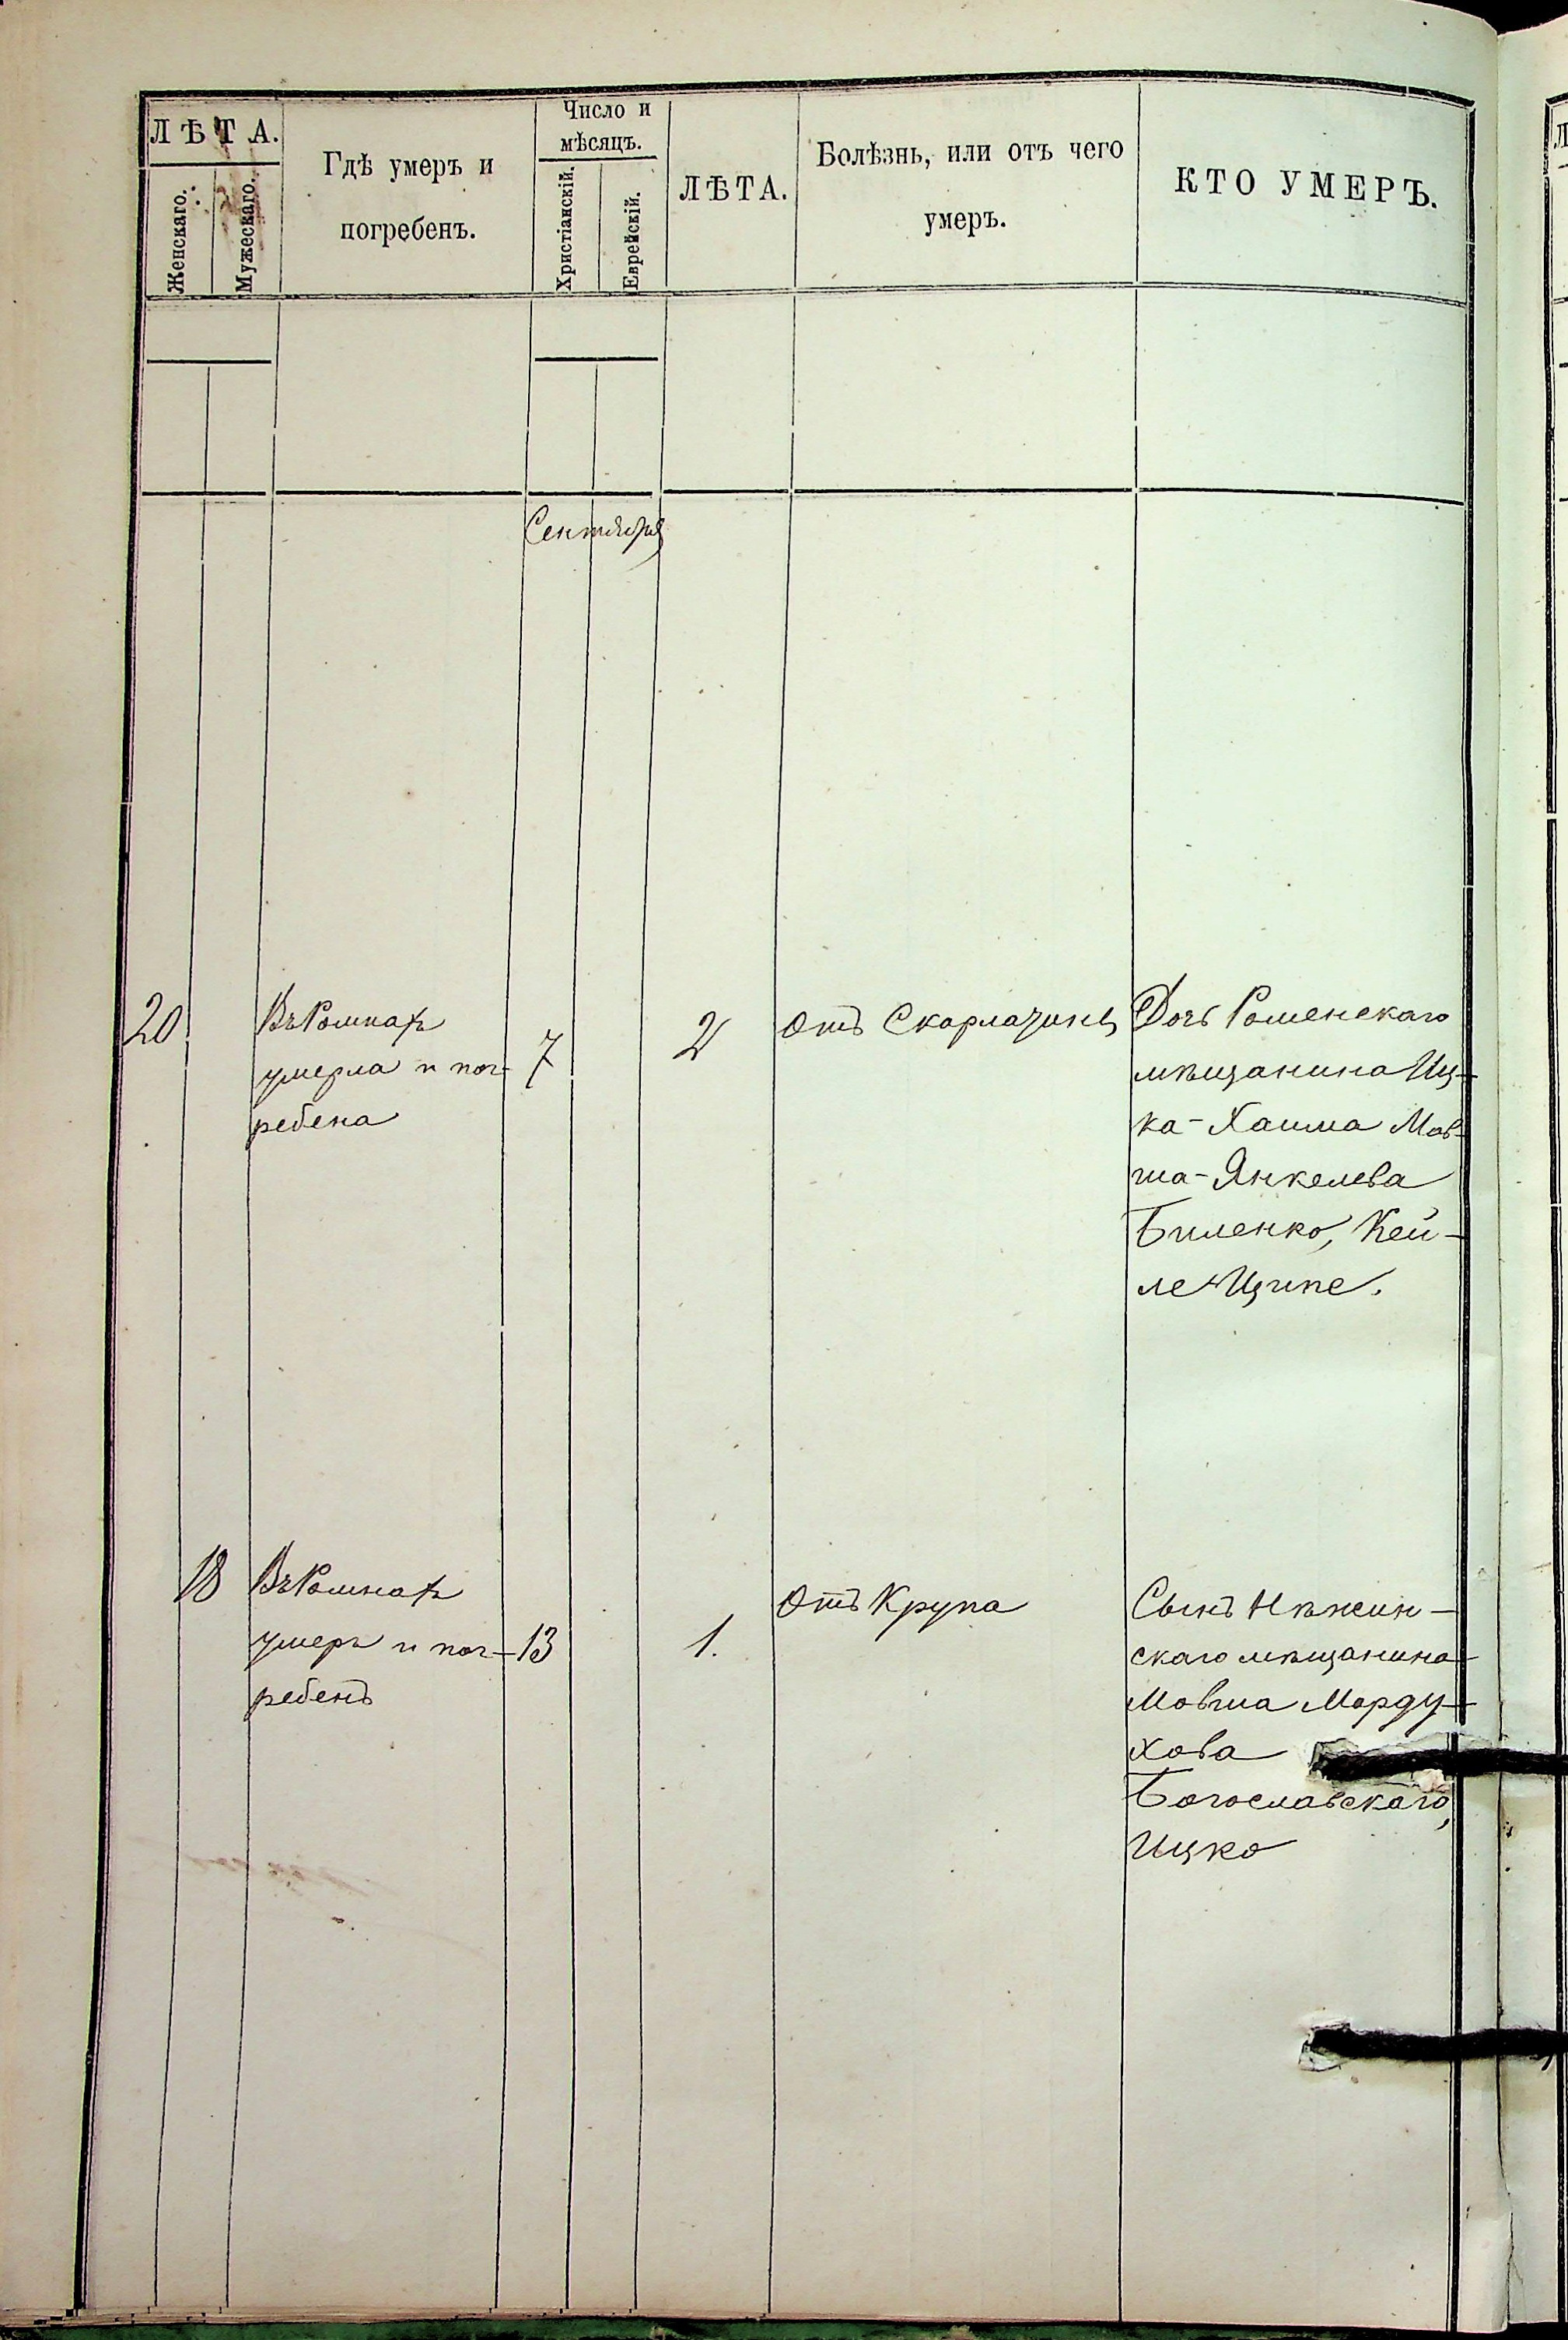 ЛѢТА.
Женскаго.
Мужескаго.
Гдѣ умеръ и
погребенъ.
Число и
мѣсяцъ.
Христіанскій.
Еврейскій.
ЛѢТА.
Болѣзнь, или отъ чего
умеръ.
КТО УМЕРЪ.
Сентября
20
Въ Ромнахъ
умерла и пог-
ребена
7
2
Отъ Скарлатины
Дочь Роменскаго
мѣщанина Иц-
ка-Хаима Мов-
ша-Янкелева
Биленко, Кей-
ле Ципе.
18
Въ Ромнахъ
умеръ и пог-
ребенъ
13
1.
Отъ Крупа
Сынъ Нѣжин-
скаго мѣщанина
Мовша Морду-
хова
Богославскаго,
Ицко